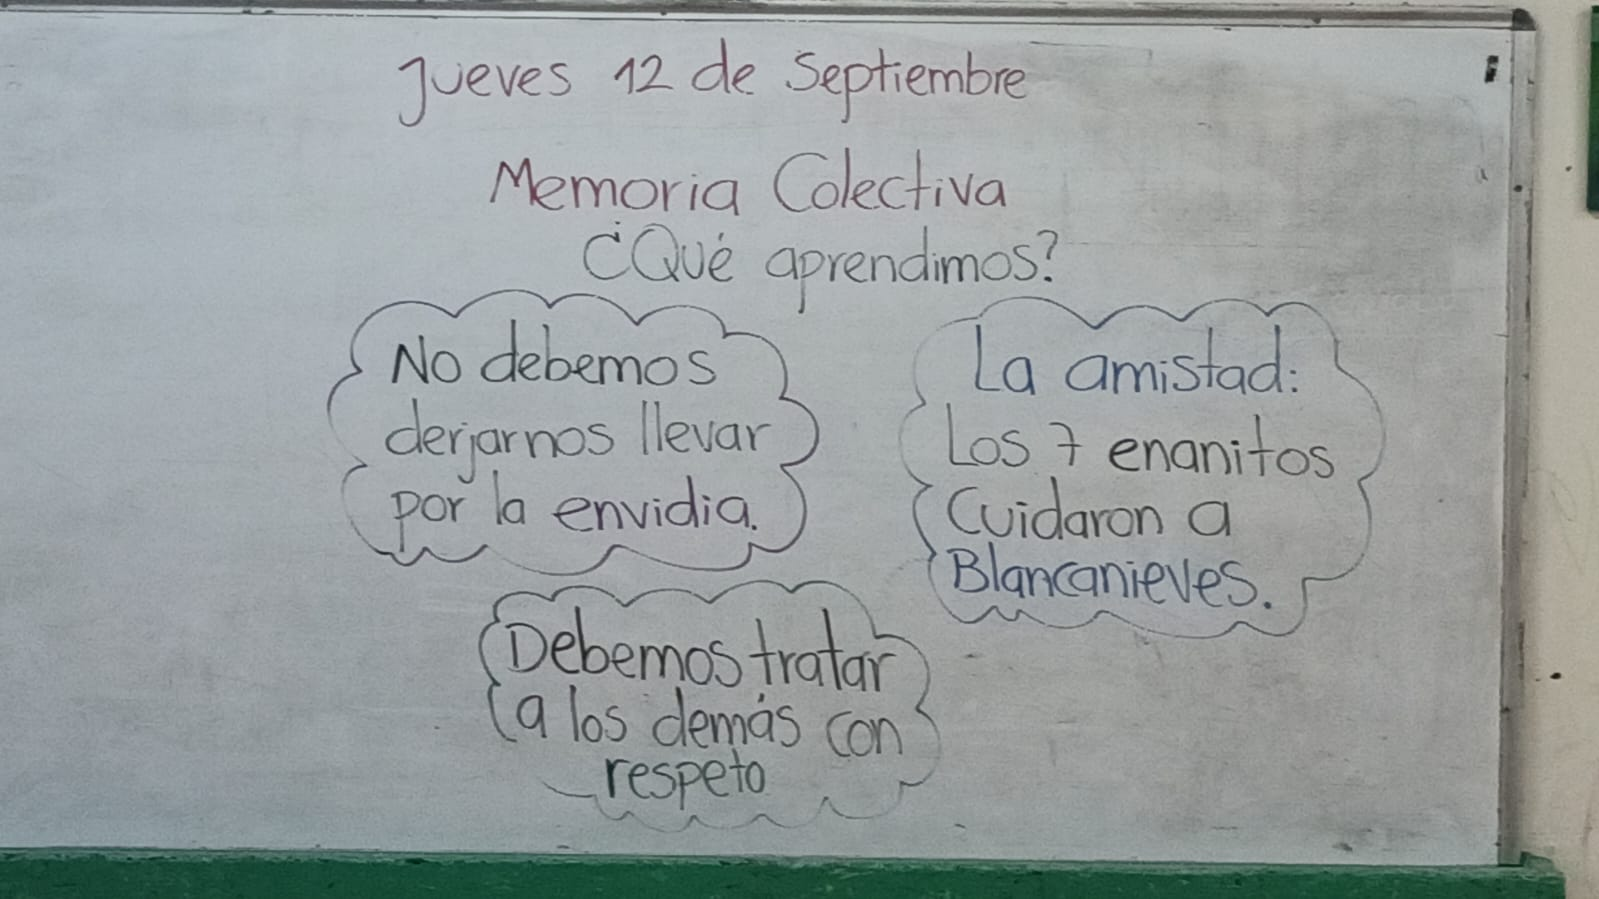 Jueves 12 de Septiembre
Memoria Colectiva
¿Qué aprendimos?
No debemos
derjarnos llevar
por la envidia.
La amistad:
Los 7 enanitos
Cuidaron a
Blancanieves.
Debemos tratar
a los demás con
respeto